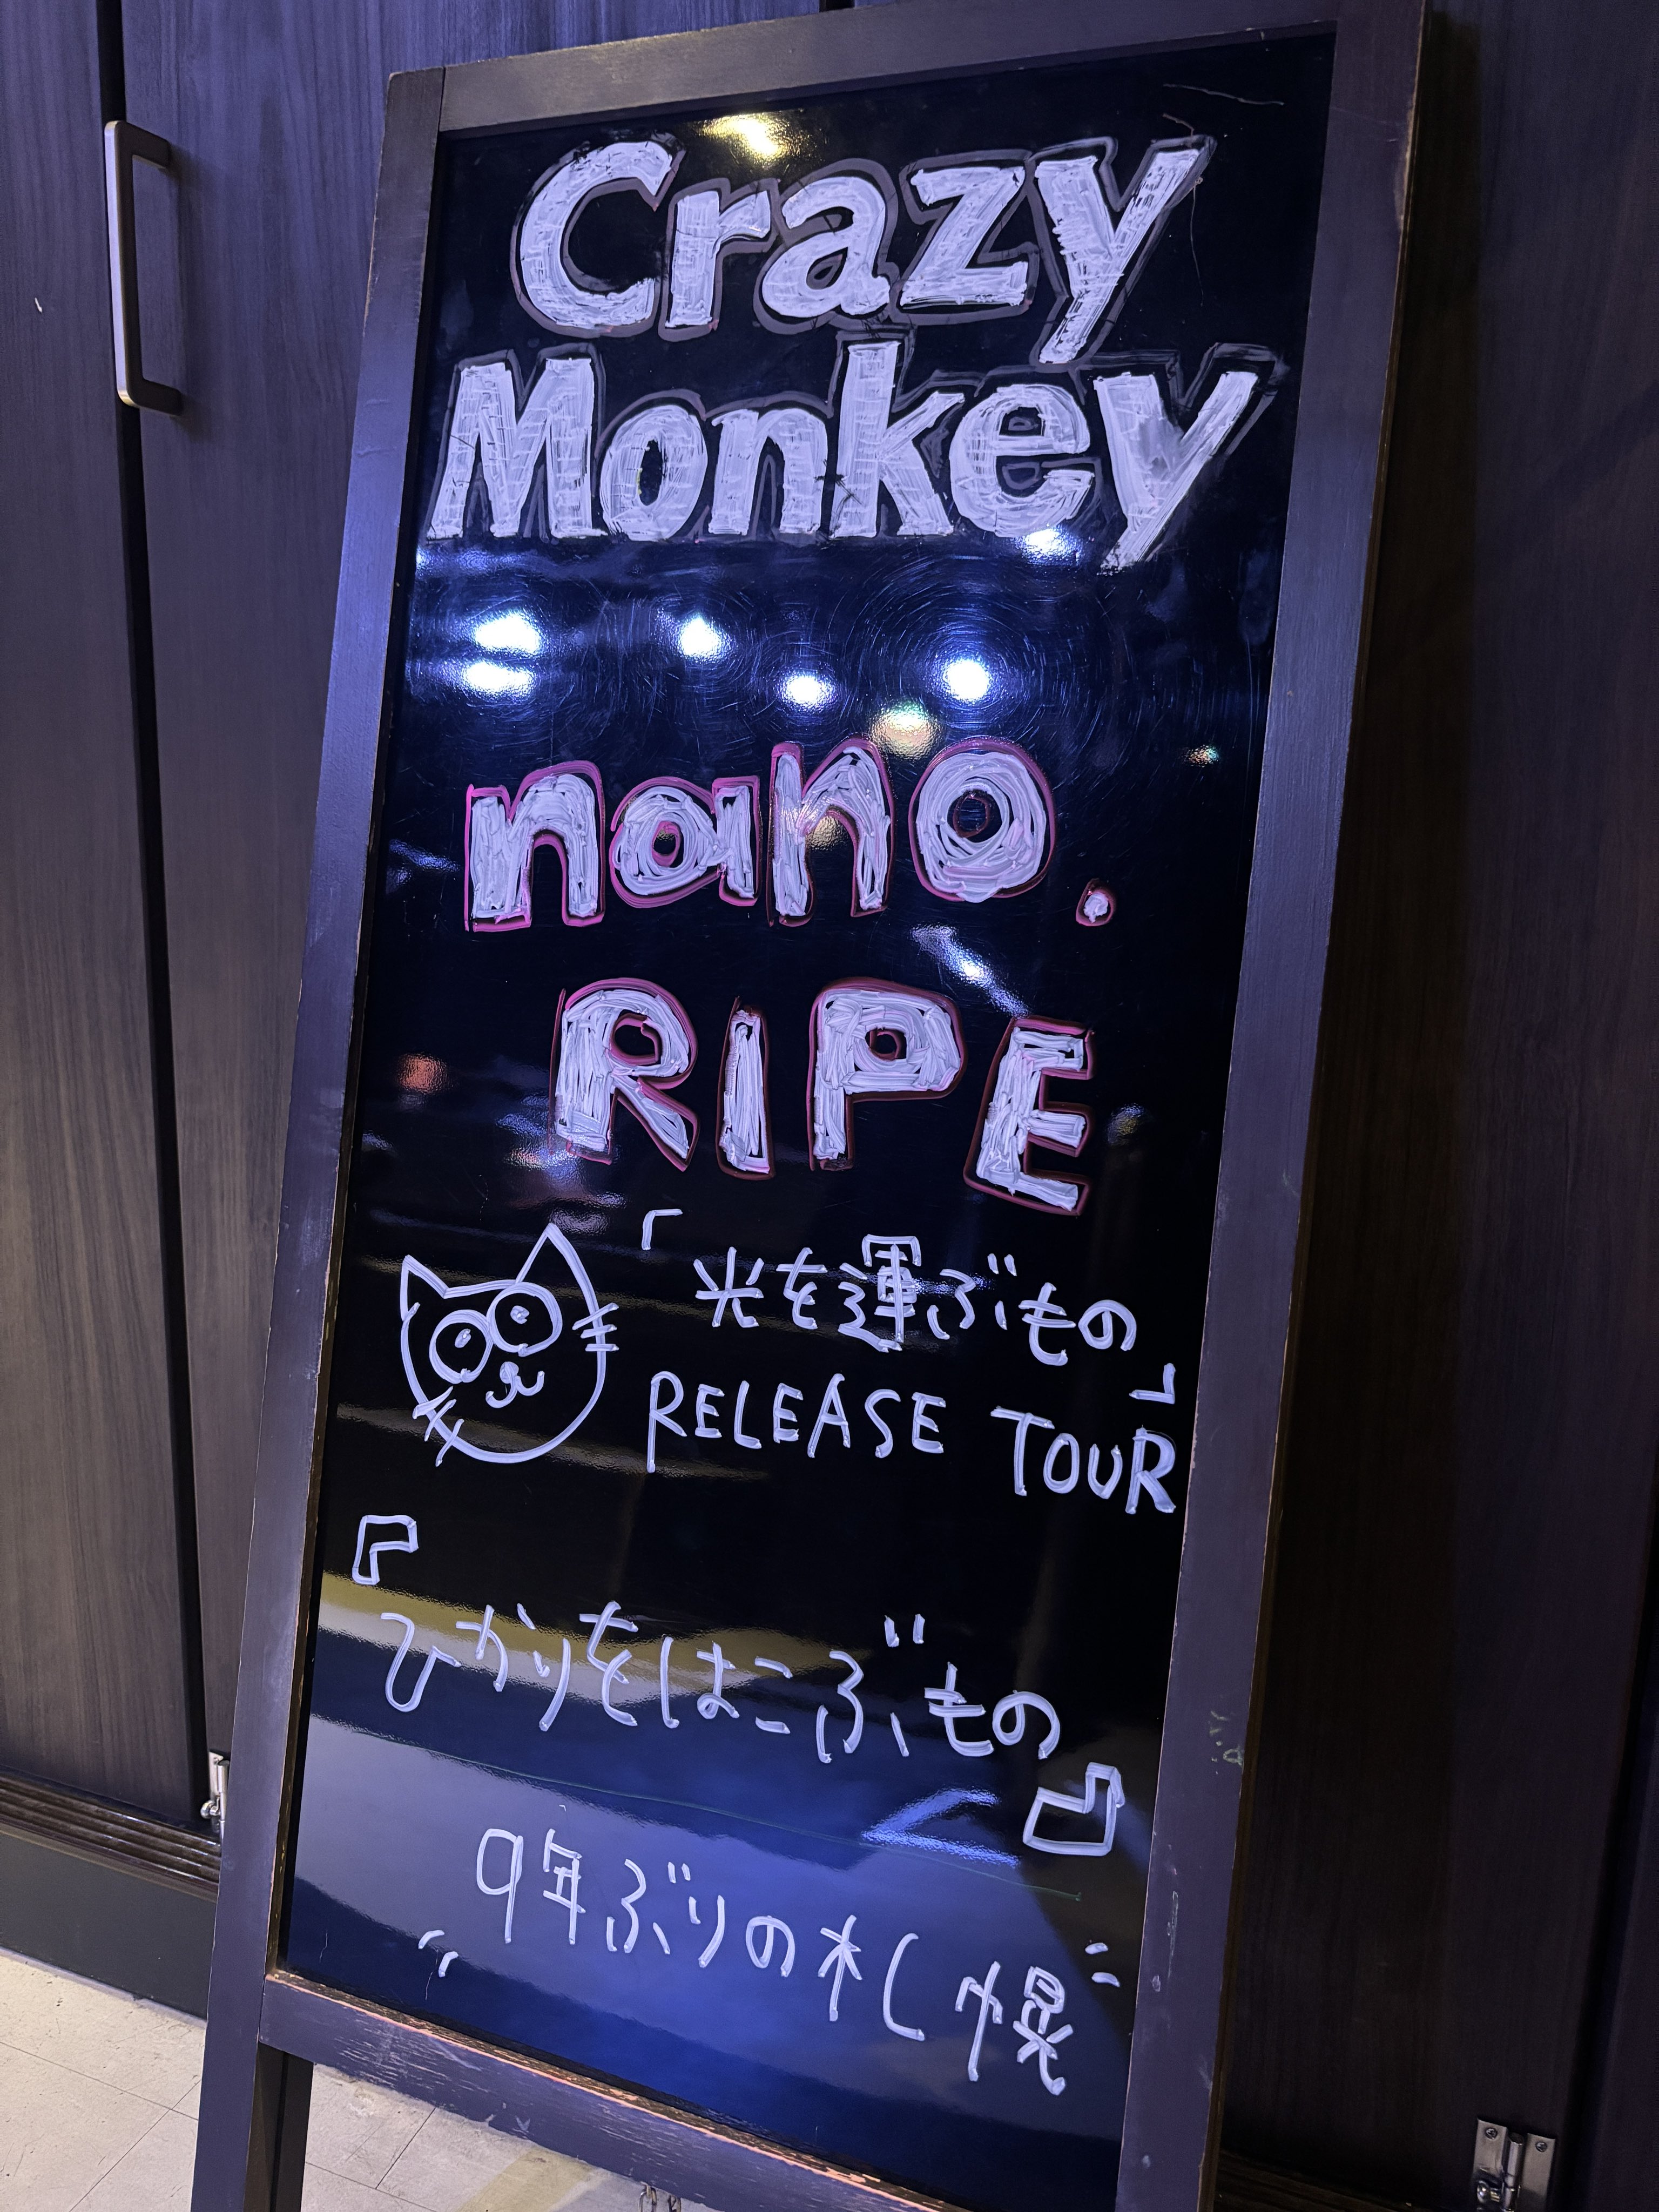 Crazy
Monkey
nano.
RIPE
「光を運ぶもの」
RELEASE TOUR
『ひかりをはこぶもの』
9年ぶりの札幌